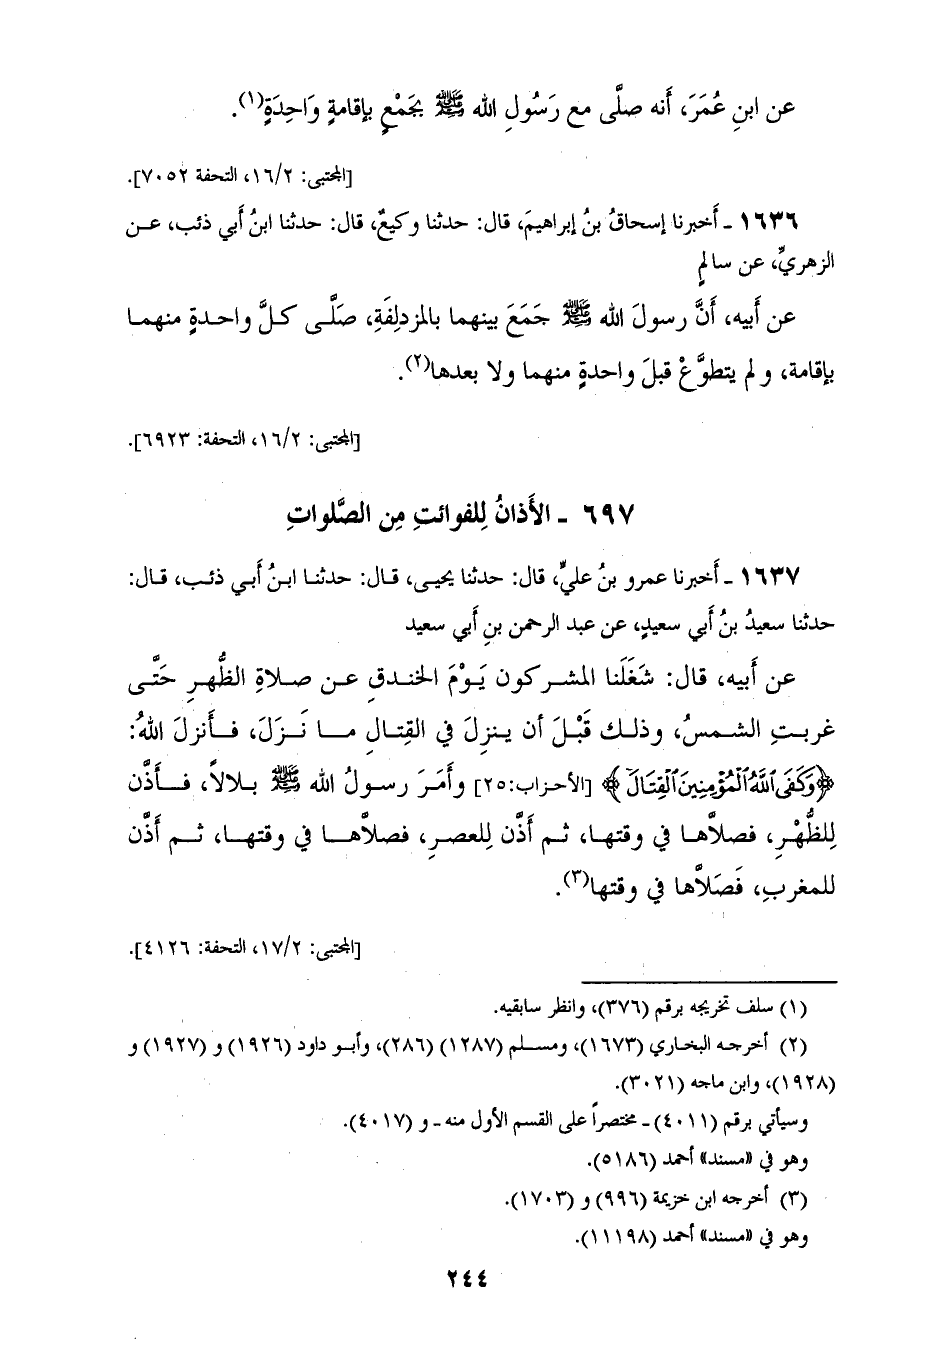 عن ابنِ عُمَرَ، أنه صلَّى مع رَسُولِ الله ﷺ بجَمْعٍ بإقامةٍ وَاحِدَةٍ(١).
[المجتبى: ١٦/٢، التحفة ٧٠٥٢].
١٦٣٦ ـ أخبرنا إسحاقُ بنُ إبراهيمَ، قال: حدثنا وكيعٌ، قال: حدثنا ابنُ أبي ذئب، عن
الزهريِّ، عن سالمٍ
عن أبيه، أنَّ رسولَ الله ﷺ جَمَعَ بينهما بالمزدلِفَةِ، صَلَّى كلَّ واحدةٍ منهما
بإقامة، ولم يتطوَّعْ قبلَ واحدةٍ منهما ولا بعدها(٢).
[المجتبى: ١٦/٢، التحفة: ٦٩٢٣].
٦٩٧ ـ الأَذانُ لِلفوائتِ مِن الصَّلواتِ
١٦٣٧ ـ أخبرنا عمرو بنُ عليٍّ، قال: حدثنا يحيى، قال: حدثنا ابنُ أبي ذئب، قال:
حدثنا سعيدُ بنُ أبي سعيدٍ، عن عبد الرحمن بنِ أبي سعيد
عن أبيه، قال: شَغَلَنا المشركون يَوْمَ الخندقِ عن صلاةِ الظُّهرِ حَتَّى
غربتِ الشمسُ، وذلك قَبْلَ أن ينزلَ في القِتالِ ما نَزَلَ، فأنزلَ اللهُ:
﴿وَكَفَى ٱللَّهُ ٱلْمُؤْمِنِينَ ٱلْقِتَالَ﴾ [الأحزاب:٢٥] وأمَرَ رسولُ الله ﷺ بلالاً، فأذَّن
لِلظُّهْرِ، فصلاَّها في وقتها، ثم أذَّن لِلعصرِ، فصلاَّها في وقتها، ثم أذَّن
للمغربِ، فَصَلاَّها في وقتها(٣).
[المجتبى: ١٧/٢، التحفة: ٤١٢٦].
(١) سلف تخريجه برقم (٣٧٦)، وانظر سابقيه.
(٢) أخرجه البخاري (١٦٧٣)، ومسلم (١٢٨٧) (٢٨٦)، وأبو داود (١٩٢٦) و (١٩٢٧) و
(١٩٢٨)، وابن ماجه (٣٠٢١).
وسيأتي برقم (٤٠١١) ـ مختصراً على القسم الأول منه ـ و (٤٠١٧).
وهو في «مسند» أحمد (٥١٨٦).
(٣) أخرجه ابن خزيمة (٩٩٦) و (١٧٠٣).
وهو في «مسند» أحمد (١١١٩٨).
٢٤٤